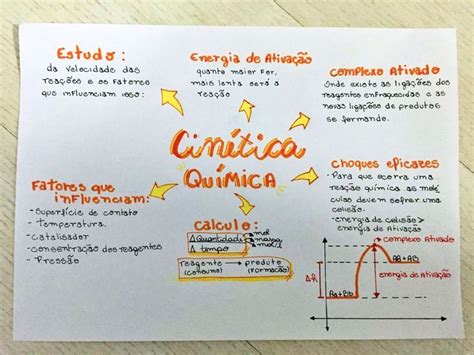 Estudo:
da velocidade das
reações e os fatores
que influenciam isso:
Energia de Ativação
quanto maior for,
mais lenta será a
reação
Complexo Ativado
Onde existe as ligações dos
reagentes enfraquecidas e as
novas ligações de produtos
se formando.
Cinética
Química
Fatores que
influenciam:
- Superfície de contato
- Temperatura.
- Catalisador
- concentração dos reagentes
- Pressão
Calculo:
Δ Quantidade
Δ tempo
mol
massa
mol/L
reagente → produto
(consumo) (formação)
Choques eficazes
- Para que ocorra uma
reação química as molé
culas devem sofrer uma
colisão.
- energia de colisão >
energia de Ativação
complexo Ativado
AB + AB
energia de Ativação
ΔH
A2 + B2